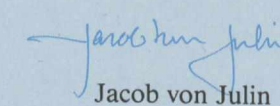 Jacob von Julin
Jacob von Julin